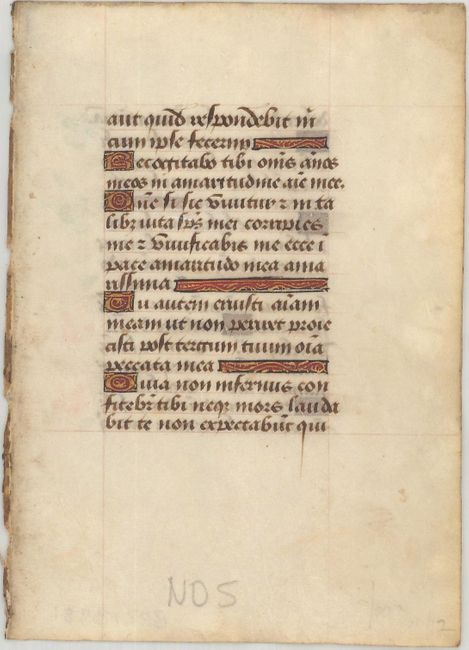 aut quid respondebit m̄
cum ipse fecerim
Recogitabo tibi om̄s an̄os
meos in amaritudine aīe mee.
Dn̄e si sic vivitur ⁊ in ta
libꝫ vita sp̄s mei corripies
me ⁊ vivificabis me ecce i
pace amaritudo mea ama
rissima
Tu autem eruisti aīam
meam ut non periret proie
cisti post tergum tuum oīa
peccata mea
Quia non infernus con
fitebr̄ tibi neqꝫ mors lauda
bit te non expectabūt qui
NOS
2